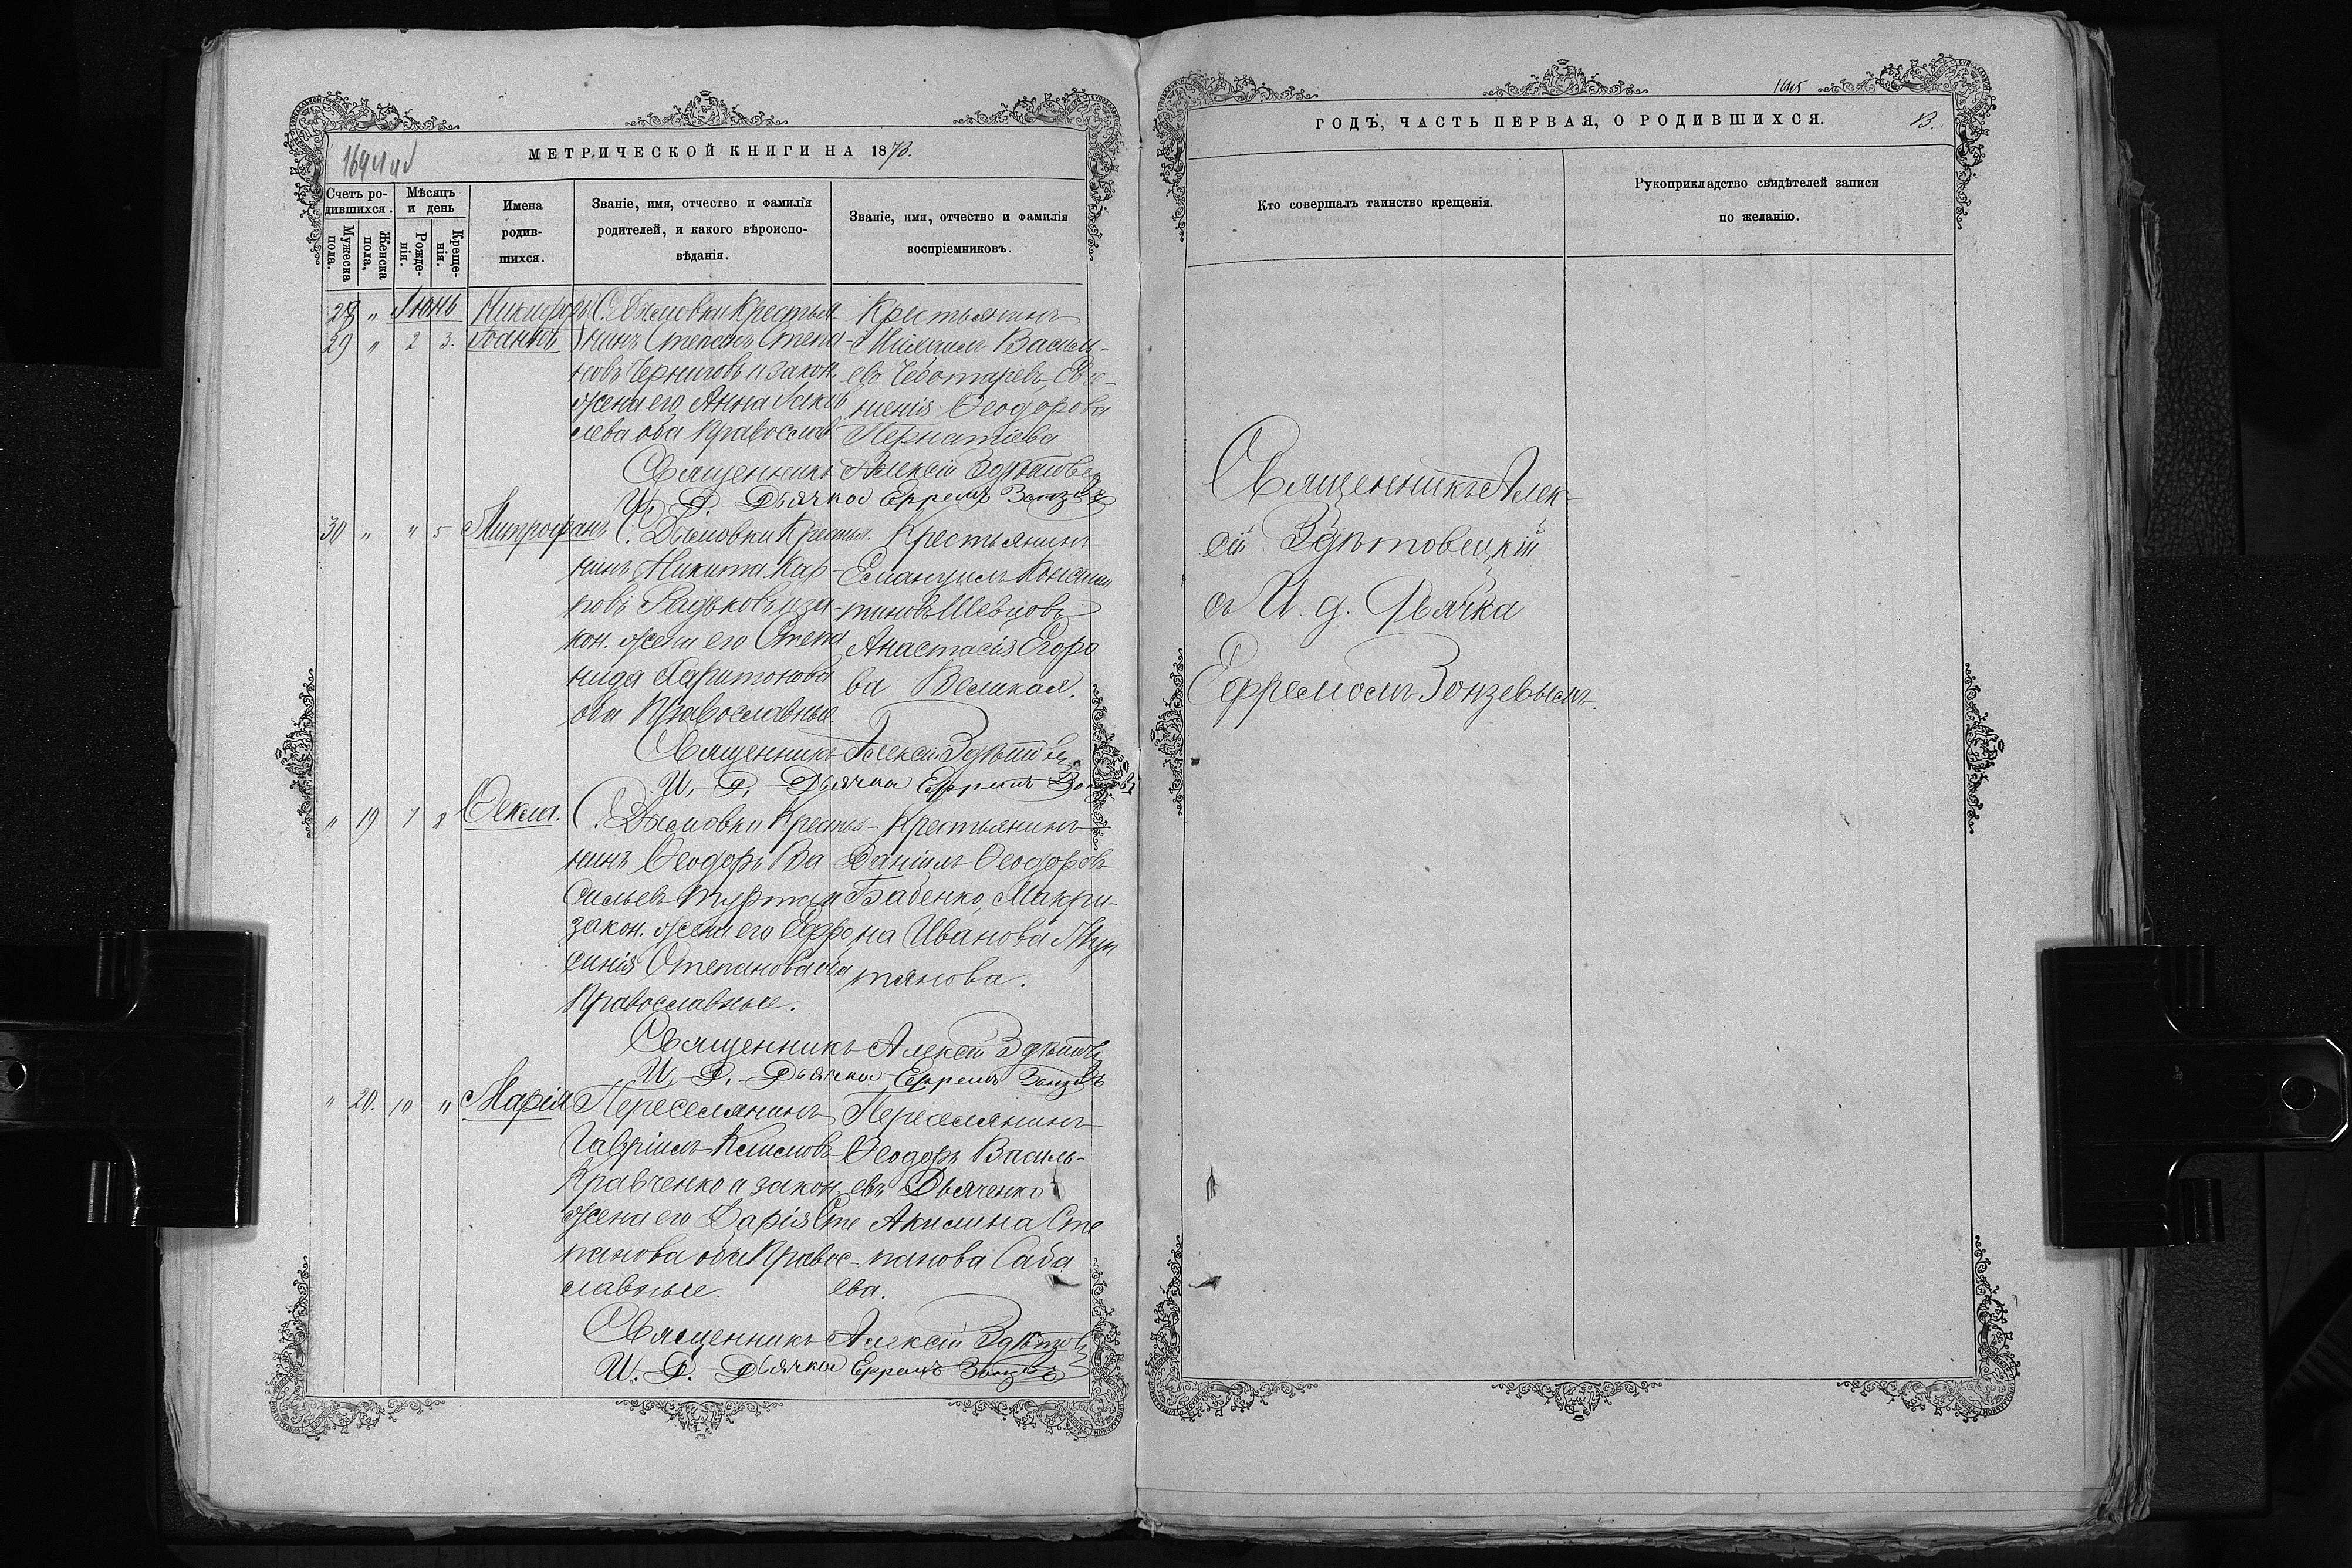 МЕТРИЧЕСКОЙ КНИГИ НА 1873.
Счетъ ро-
дившихся.
Мѣсяцъ
и день
Мужеска
пола.
Женска
пола,
Рожде-
нія.
Креще-
нія.
Имена
родив-
шихся.
Званіе, имя, отчество и фамилія
родителей, и какого вѣроиспо-
вѣданія.
Званіе, имя, отчество и фамилія
воспріемниковъ.
28 „ Іюнь Никифоръ
29 „ 2 3. Іоаннъ
С. Дымовки Крестья
нинъ Степанъ Степа-
новъ Черниговъ и закон.
жена его Анна Іаков
лева оба Православ.
Крестьянинъ
Михаилъ Василь-
евъ Чеботаревъ, Ев-
Ѳеодорова
Священникъ Алексій
И. Д. Дьячка Ефремъ
30 „ „ 5 Митрофанъ
С. Дымовки Крестья.
нинъ Никита Кар-
повъ Радьковъ и за-
кон. жена его Степа
нида Харитонова
оба Православные.
Крестьянинъ
Емануилъ Констан
тиновъ Шевцовъ
Анастасія Егоро
ва Великая.
Священникъ Алексій
И. Д. Дьячка Ефремъ
„ 19 7 8 Ѳекла.
С. Дымовки Крестья-
нинъ Ѳеодоръ Ва
сильевъ и
закон. жена его Ефро
синія Степанова оба
Православные.
Крестьянинъ
Даніилъ Ѳеодоровъ
Бабенко, Макри-
на Иванова
тянова.
Священникъ Алексій
И. Д. Дьячка Ефремъ
„ 20. 10 „ Марія
Переселянинъ
Гавріилъ Климовъ
Кравченко и закон.
жена его Дарія Сте
панова оба Правос-
лавные.
Переселянинъ
Ѳеодоръ Василь-
евъ Дьяченко
Акилина Сте
панова Саба
ева.
Священникъ Алексій
И. Д. Дьячка Ефремъ
1645
ГОДЪ, ЧАСТЬ ПЕРВАЯ, О РОДИВШИХСЯ.
13.
Кто совершалъ таинство крещенія.
Рукоприкладство свидѣтелей записи
по желанію.
Священникъ Алек-
сій Здѣтовецкій
съ И. д. Дьячка
Ефремомъ Зонзевымъ.